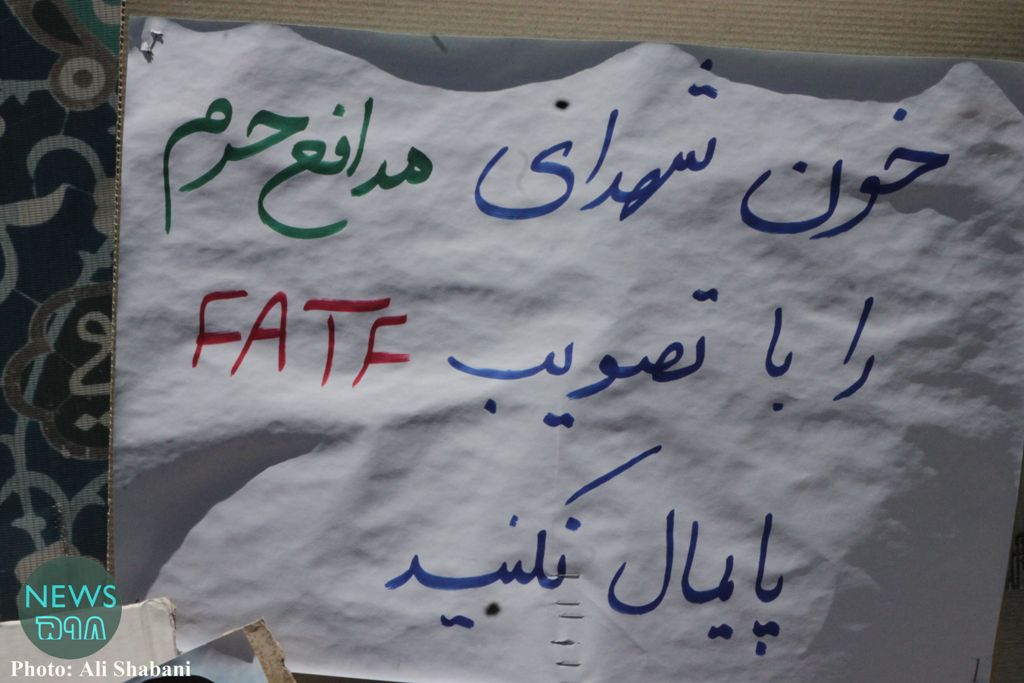 خون شهدای مدافع حرم
را با تصویب FATF
پایمال نکنید
NEWS
Photo: Ali Shabani